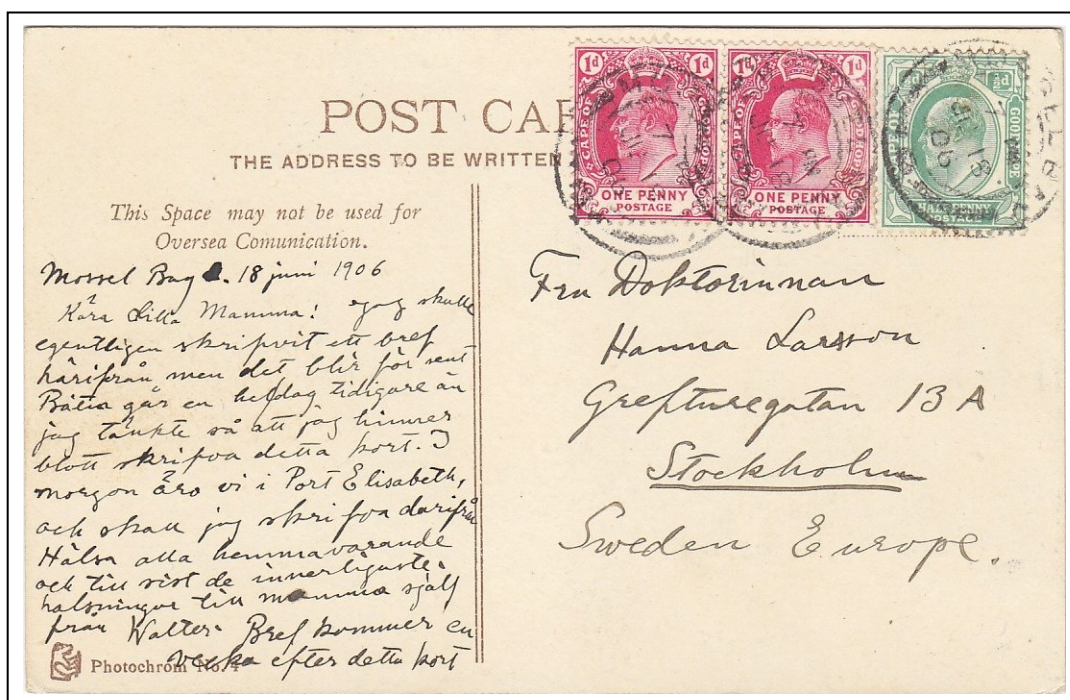 POST CAR
THE ADDRESS TO BE WRITTEN
This Space may not be used for
Oversea Comunication.
Mossel Bay 18 juni 1906
Kära Lilla Mamma! jag skulle
egentligen skrifvit ett bref
härifrån men det blir för sent
Båten går en heldag tidigare än
jag tänkte så att jag hinner
blott skrifva detta kort. I
morgon äro vi i Port Elisabeth,
och skall jag skrifva därifrån
Hälsa alla hemmavarande
och till sist de innerligaste
hälsningar till mamma själf
från Walter. Bref kommer en
vecka efter detta kort
Photochrom No. 4
1d 1d
CAPE OF GOOD HOPE
ONE PENNY
POSTAGE
1d 1d
CAPE OF GOOD HOPE
ONE PENNY
POSTAGE
HALF PENNY
POSTAGE
Fru Doktorinnan
Hanna Larsson
Grefturegatan 13 A
Stockholm
Sweden Europe.